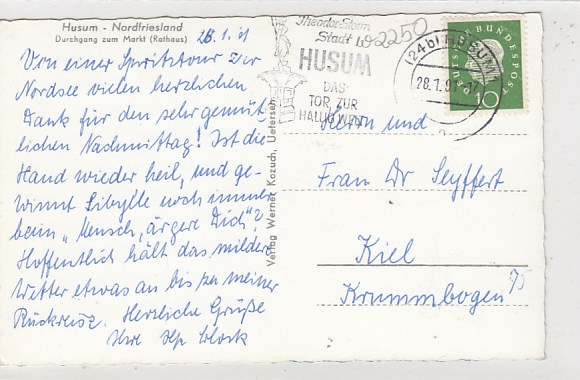 Husum - Nordfriesland
Durchgang zum Markt (Rathaus)
28.1.61
Von einer Spritztour zur
Nordsee vielen herzlichen
Dank für den sehr gemüt-
lichen Nachmittag! Ist die
Hand wieder heil, und ge-
winnt Sibylle noch immer
beim „Mensch, ärgere Dich"?
Hoffentlich hält das mildere
Wetter etwas an bis zu meiner
Rückreise. Herzliche Grüße
Ihre
Verlag Werner Kozuch, Uetersen
Theodor-Storm
Stadt
HUSUM
DAS
TOR ZUR
HALLIGWELT
W2250
(24b) HUSUM
28.1.61
DEUTSCHE BUNDESPOST
10
Herrn und
Frau Dr Seyffert
Kiel
Krummbogen 75